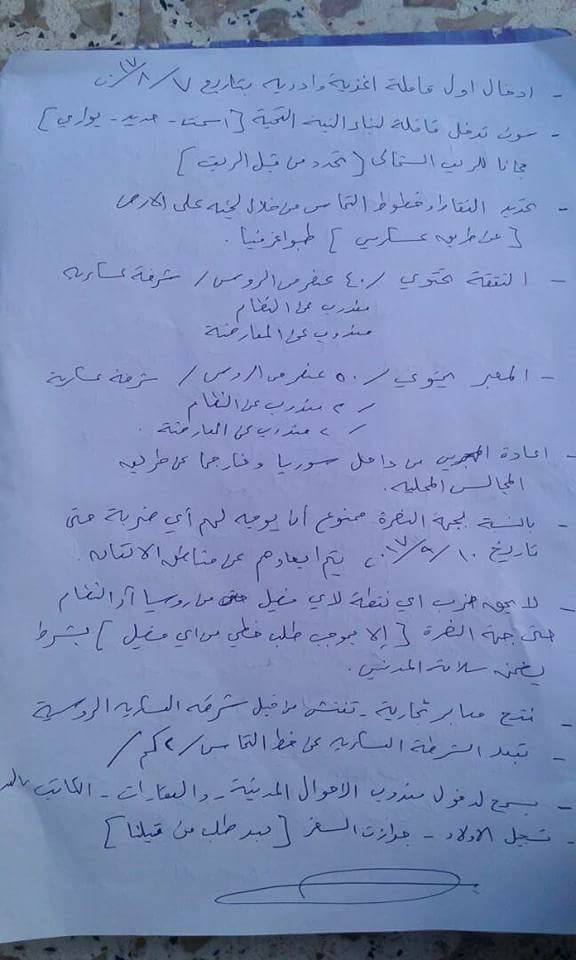 - ادخال اول قافلة اغذية وادوية بتاريخ ٧/٨/٢٠١٧
- سوف تدخل قافلة لبناء البنية التحتية [اسمنت - حديد - بواري]
مجانا للريف الشمالي [تحدد من قبل الريف]
- تحديد النقاط وخطوط التماس من خلال لجنة على الارض
[عن طريق عسكريين] طبوغرافيا.
- النقطة تحتوي /٤٠ عنصر من الروس/ شرطة عسكرية
مندوب عن النظام
مندوب عن المعارضة
- المعبر يحتوي /٥٠ عنصر من الروس/ شرطة عسكرية
/٢ مندوب عن النظام
/٢ مندوب عن المعارضة.
- اعادة المهجرين من داخل سوريا وخارجها عن طريق
المجالس المحلية.
- بالنسبة لجبهة النصرة ممنوع أن يوجه لهم أي ضربة حتى
تاريخ ١٠/٩/٢٠١٧ يتم ابعادهم عن مناطق الاتفاق.
- لا يحق ضرب اي نقطة لاي فصيل من روسيا أو النظام
حتى جبهة النصرة [إلا بموجب طلب خطي من اي فصيل] بشرط
يضمن سلامة المدنيين.
- نفتح معابر تجارية - تفتش من قبل شرطة العسكرية الروسية
- تبعد الشرطة العسكرية عن خط التماس /٢ كم/
- يسمح لدخول مندوب الاحوال المدنية - والعقارات - الكاتب بالعدل
- تسجيل الاولاد - جوازات السفر [بعد طلب من قبلنا]